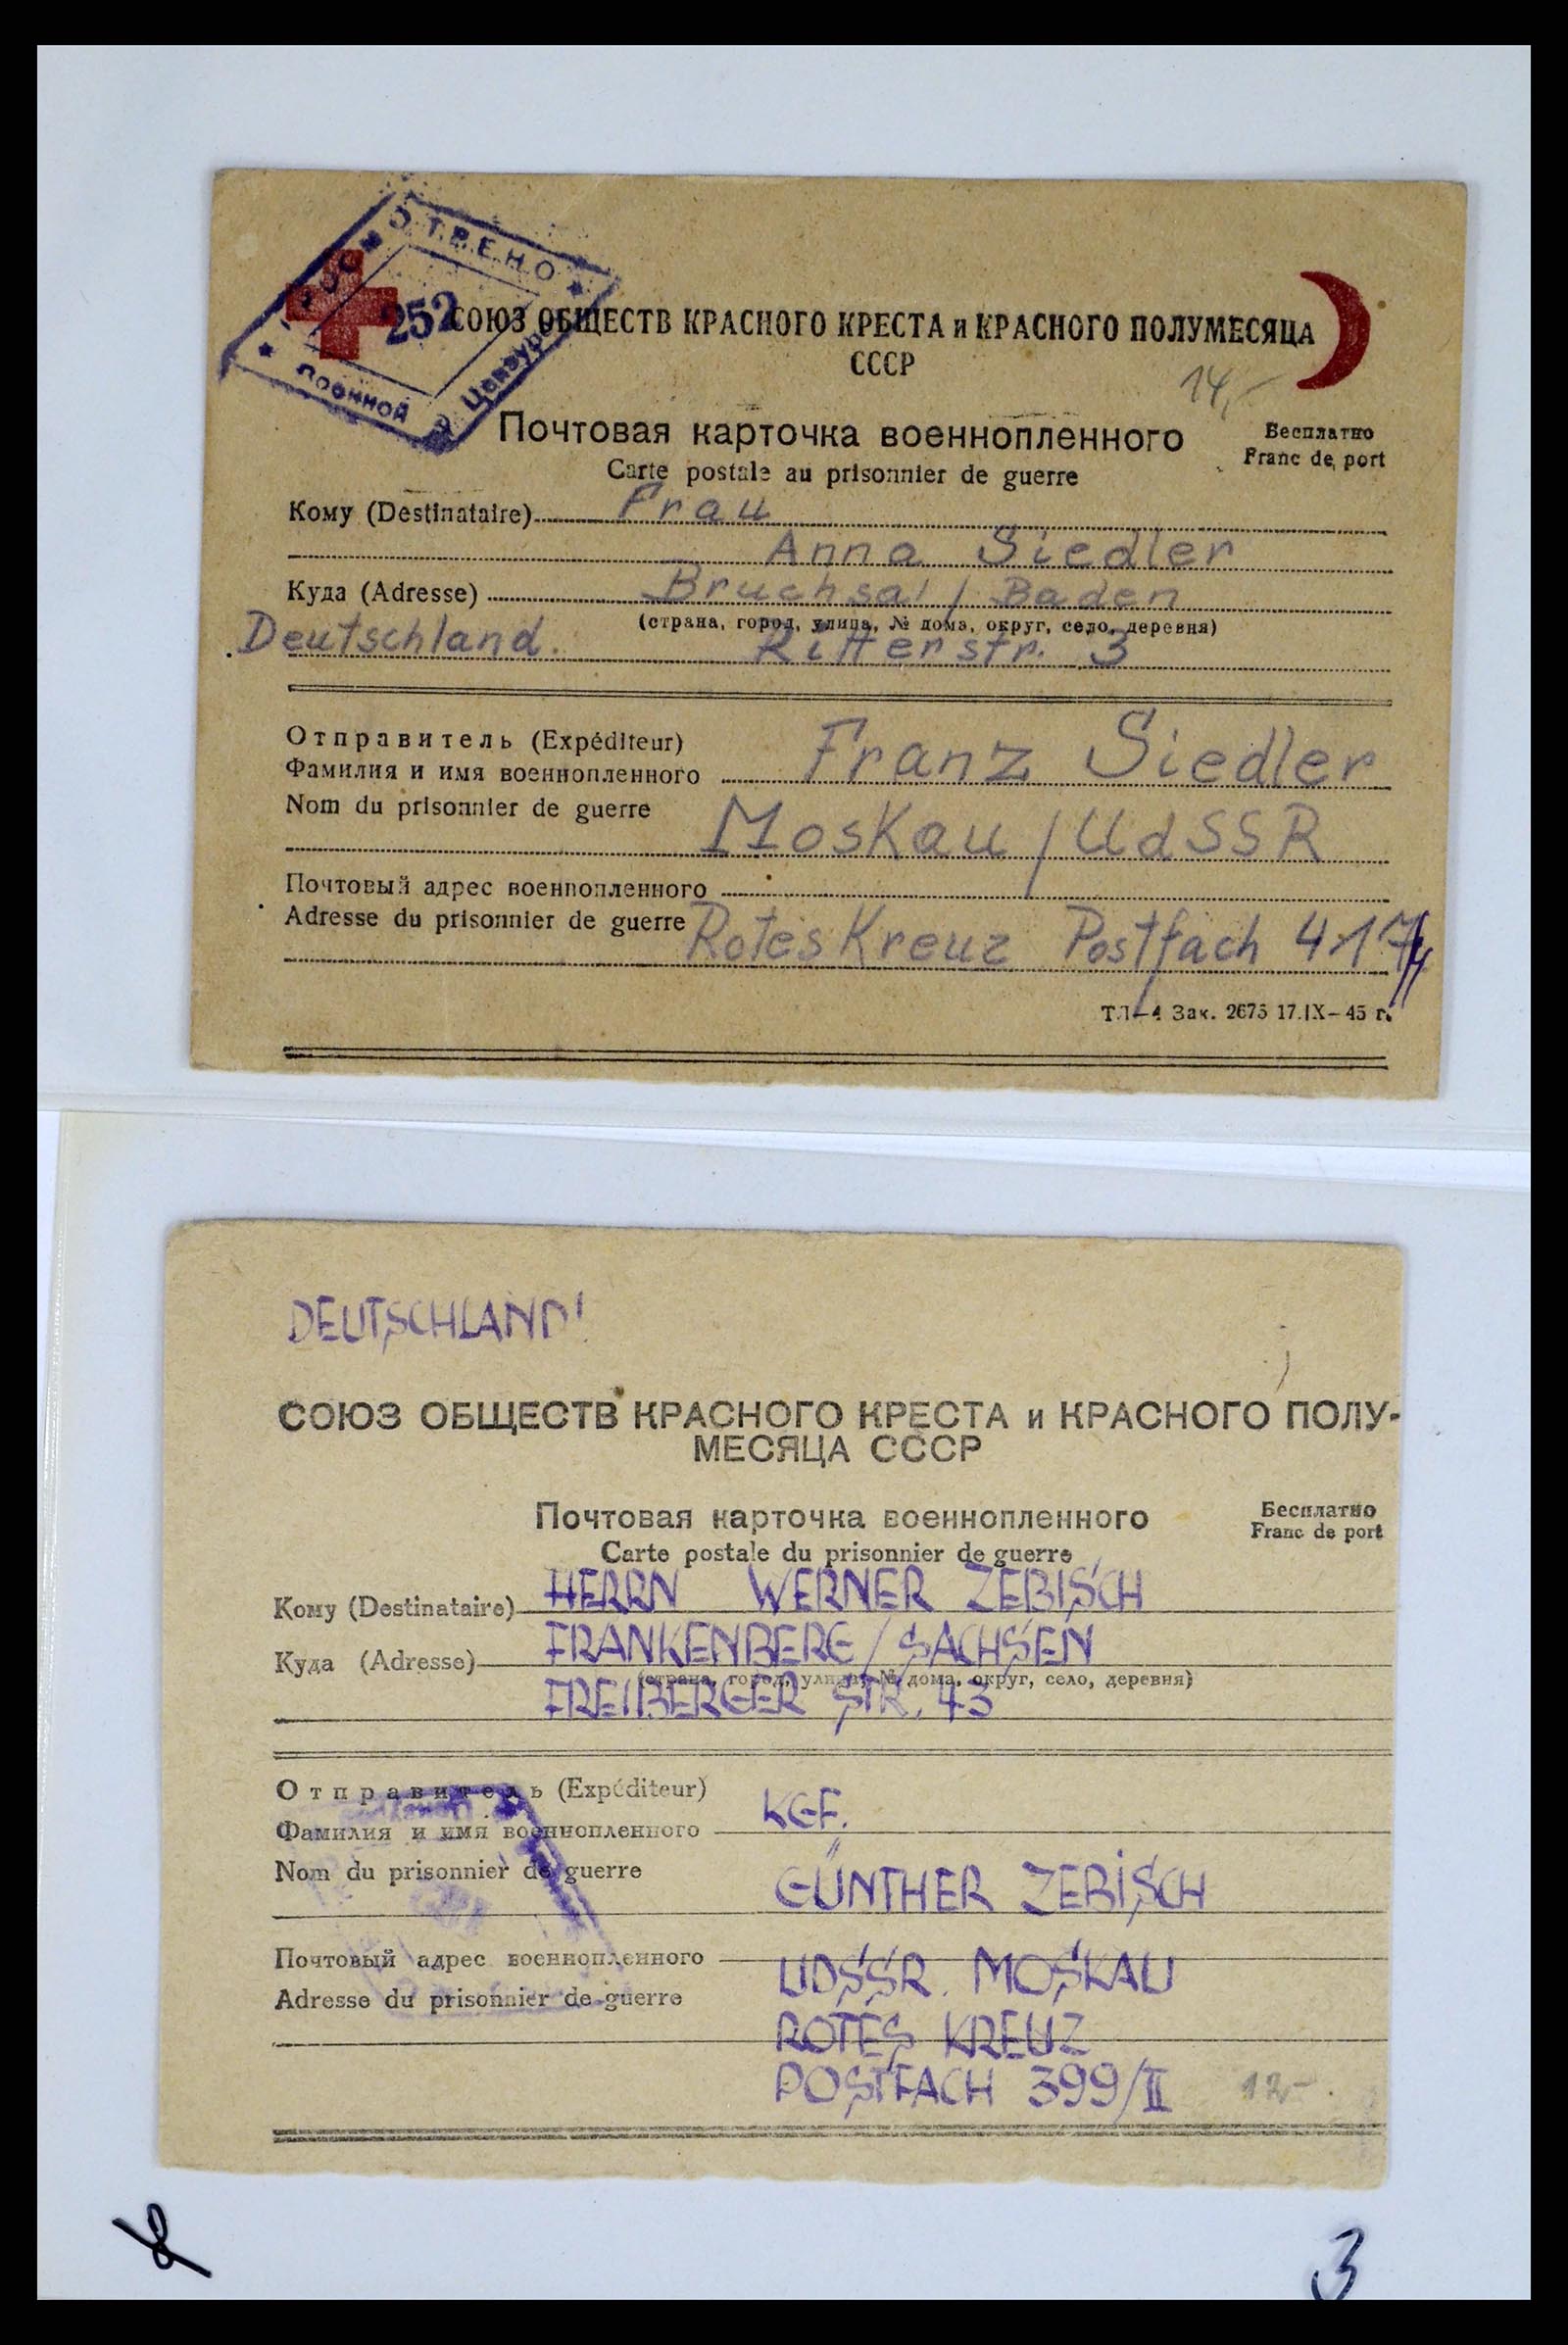 ПРОСМОТРЕНО
252
Военной Цензурой
СОЮЗ ОБЩЕСТВ КРАСНОГО КРЕСТА и КРАСНОГО ПОЛУМЕСЯЦА
СССР
14,-
Почтовая карточка военнопленного
Бесплатно
Carte postale au prisonnier de guerre
Franc de port
Кому (Destinataire) Frau
Anna Siedler
Куда (Adresse) Bruchsal / Baden
(страна, город, улица, № дома, округ, село, деревня)
Deutschland. Ritterstr. 3
Отправитель (Expéditeur)
Фамилия и имя военнопленного Franz Siedler
Nom du prisonnier de guerre
Moskau / UdSSR
Почтовый адрес военнопленного
Adresse du prisonnier de guerre Rotes Kreuz Postfach
Зак. 2675 17.IX-45 г.
DEUTSCHLAND!
СОЮЗ ОБЩЕСТВ КРАСНОГО КРЕСТА и КРАСНОГО ПОЛУ-
МЕСЯЦА СССР
Почтовая карточка военнопленного
Бесплатно
Carte postale du prisonnier de guerre
Franc de port
Кому (Destinataire) HERRN WERNER ZEBISCH
Куда (Adresse) FRANKENBERG / SACHSEN
(страна, город, улица, № дома, округ, село, деревня)
FREIBERGER STR. 43
Отправитель (Expéditeur)
KGF.
Фамилия и имя военнопленного
Nom du prisonnier de guerre
GÜNTHER ZEBISCH
Почтовый адрес военнопленного
UDSSR. MOSKAU
Adresse du prisonnier de guerre
ROTES KREUZ
POSTFACH 399/II 12,-
3